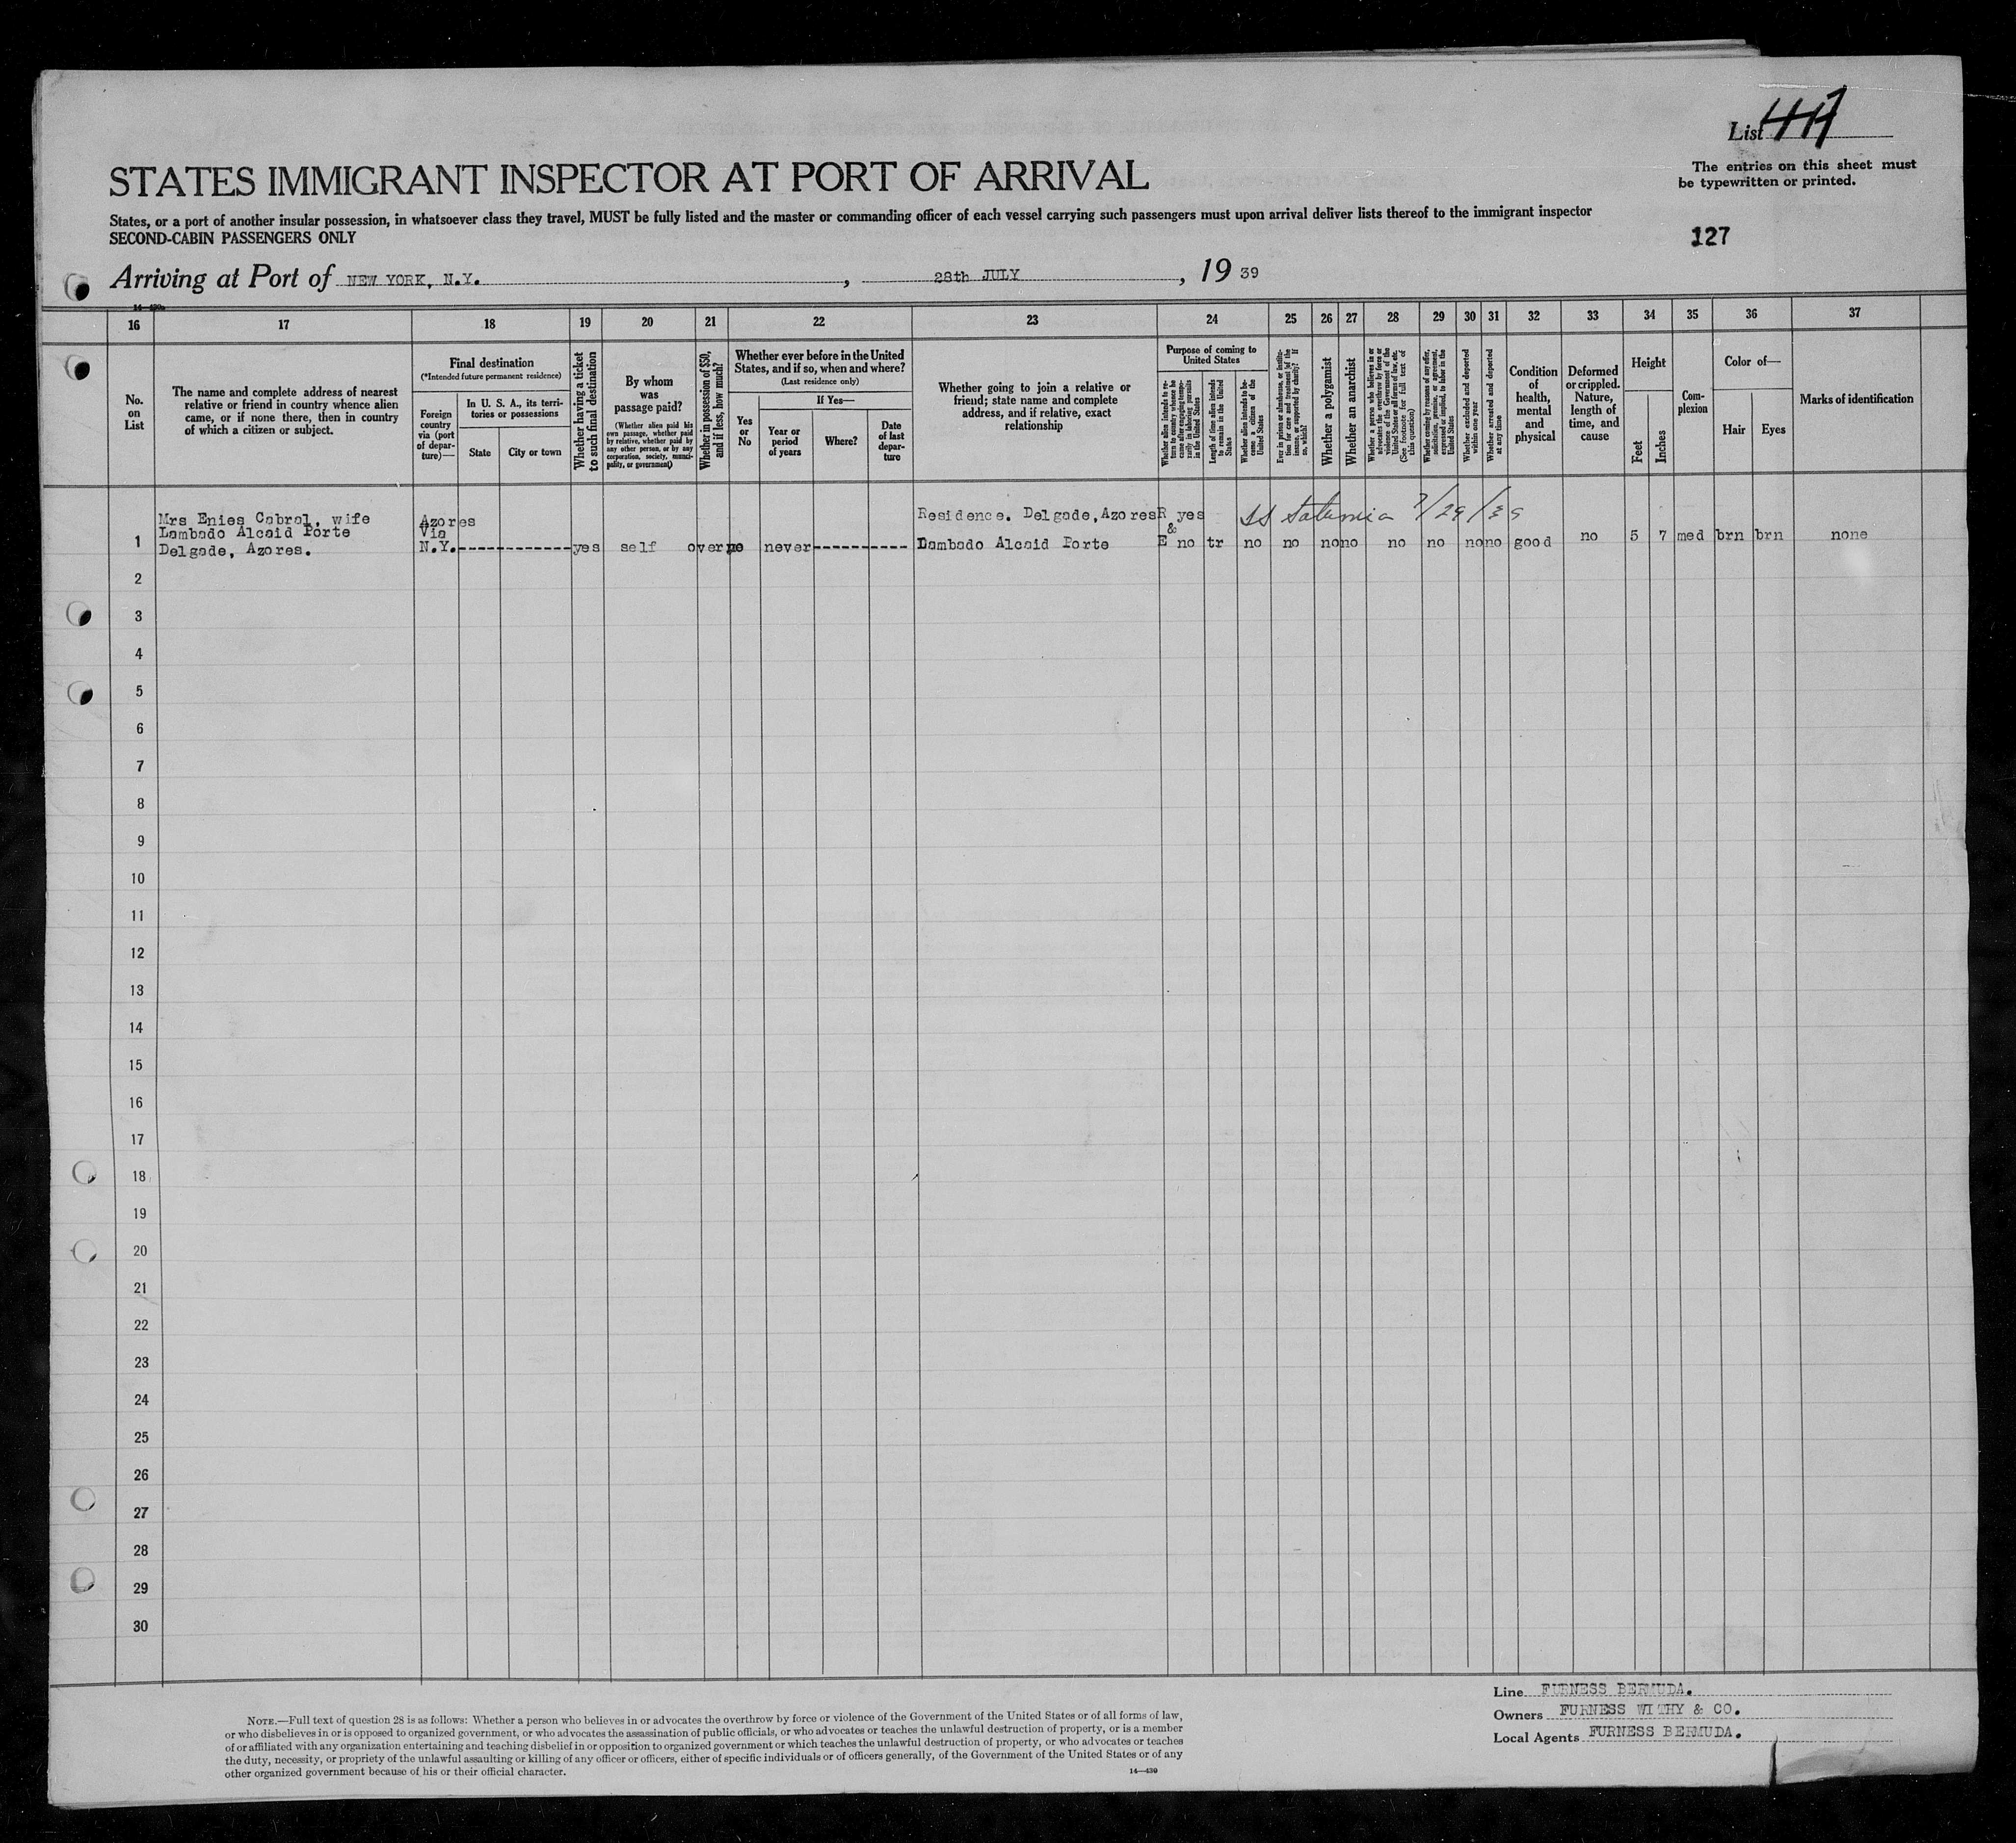 List
STATES IMMIGRANT INSPECTOR AT PORT OF ARRIVAL
The entries on this sheet must
be typewritten or printed.
States, or a port of another insular possession, in whatsoever class they travel, MUST be fully listed and the master or commanding officer of each vessel carrying such passengers must upon arrival deliver lists thereof to the immigrant inspector
SECOND-CABIN PASSENGERS ONLY
127
Arriving at Port of NEW YORK, N.Y. , 28th JULY , 19 39
16 17 18 19 20 21 22 23 24 25 26 27 28 29 30 31 32 33 34 35 36 37
No.
on
List
The name and complete address of nearest
relative or friend in country whence alien
came, or if none there, then in country
of which a citizen or subject.
Final destination
(*Intended future permanent residence)
Foreign
country
via (port
of depar-
ture)—
In U. S. A., its terri-
tories or possessions
State
City or town
Whether having a ticket
to such final destination
By whom
was
passage paid?
(Whether alien paid his
own passage, whether paid
by relative, whether paid by
any other person, or by any
corporation, society, munici-
pality, or government)
Whether in possession of $50,
and if less, how much?
Whether ever before in the United
States, and if so, when and where?
(Last residence only)
Yes
or
No
If Yes—
Year or
period
of years
Where?
Date
of last
depar-
ture
Whether going to join a relative or
friend; state name and complete
address, and if relative, exact
relationship
Purpose of coming to
United States
Whether alien intends to re-
turn to country whence he
came after engaging tempo-
rarily in laboring pursuits
in the United States
Length of time alien intends
to remain in the United
States
Whether alien intends to be-
come a citizen of the
United States
Ever in prison or almshouse, or institu-
tion for care and treatment of the
insane, or supported by charity? If
so, which?
Whether a polygamist
Whether an anarchist
Whether a person who believes in or
advocates the overthrow by force or
violence of the Government of the
United States or all forms of law, etc.
(See footnote for full text of
this question)
Whether coming by reasons of any offer,
solicitation, promise, or agreement,
expressed or implied, to labor in the
United States
Whether excluded and deported
within one year
Whether arrested and deported
at any time
Condition
of
health,
mental
and
physical
Deformed
or crippled.
Nature,
length of
time, and
cause
Height
Feet
Inches
Com-
plexion
Color of—
Hair
Eyes
Marks of identification
Mrs Enies Cabral, wife Azores Residence. Delgade, Azores R yes SS Saturnia 7/29/39
Lambado Alcaid Porte Via &
1 Delgade, Azores. N.Y. yes self over no never Lambado Alcaid Porte E no tr no no no no no no no no good no 5 7 med brn brn none
2
3
4
5
6
7
8
9
10
11
12
13
14
15
16
17
18
19
20
21
22
23
24
25
26
27
28
29
30
Line FURNESS BERMUDA.
Owners FURNESS WITHY & CO.
Local Agents FURNESS BERMUDA.
NOTE.—Full text of question 28 is as follows: Whether a person who believes in or advocates the overthrow by force or violence of the Government of the United States or of all forms of law,
or who disbelieves in or is opposed to organized government, or who advocates the assassination of public officials, or who advocates or teaches the unlawful destruction of property, or is a member
of or affiliated with any organization entertaining and teaching disbelief in or opposition to organized government or which teaches the unlawful destruction of property, or who advocates or teaches
the duty, necessity, or propriety of the unlawful assaulting or killing of any officer or officers, either of specific individuals or of officers generally, of the Government of the United States or of any
other organized government because of his or their official character.
14—430